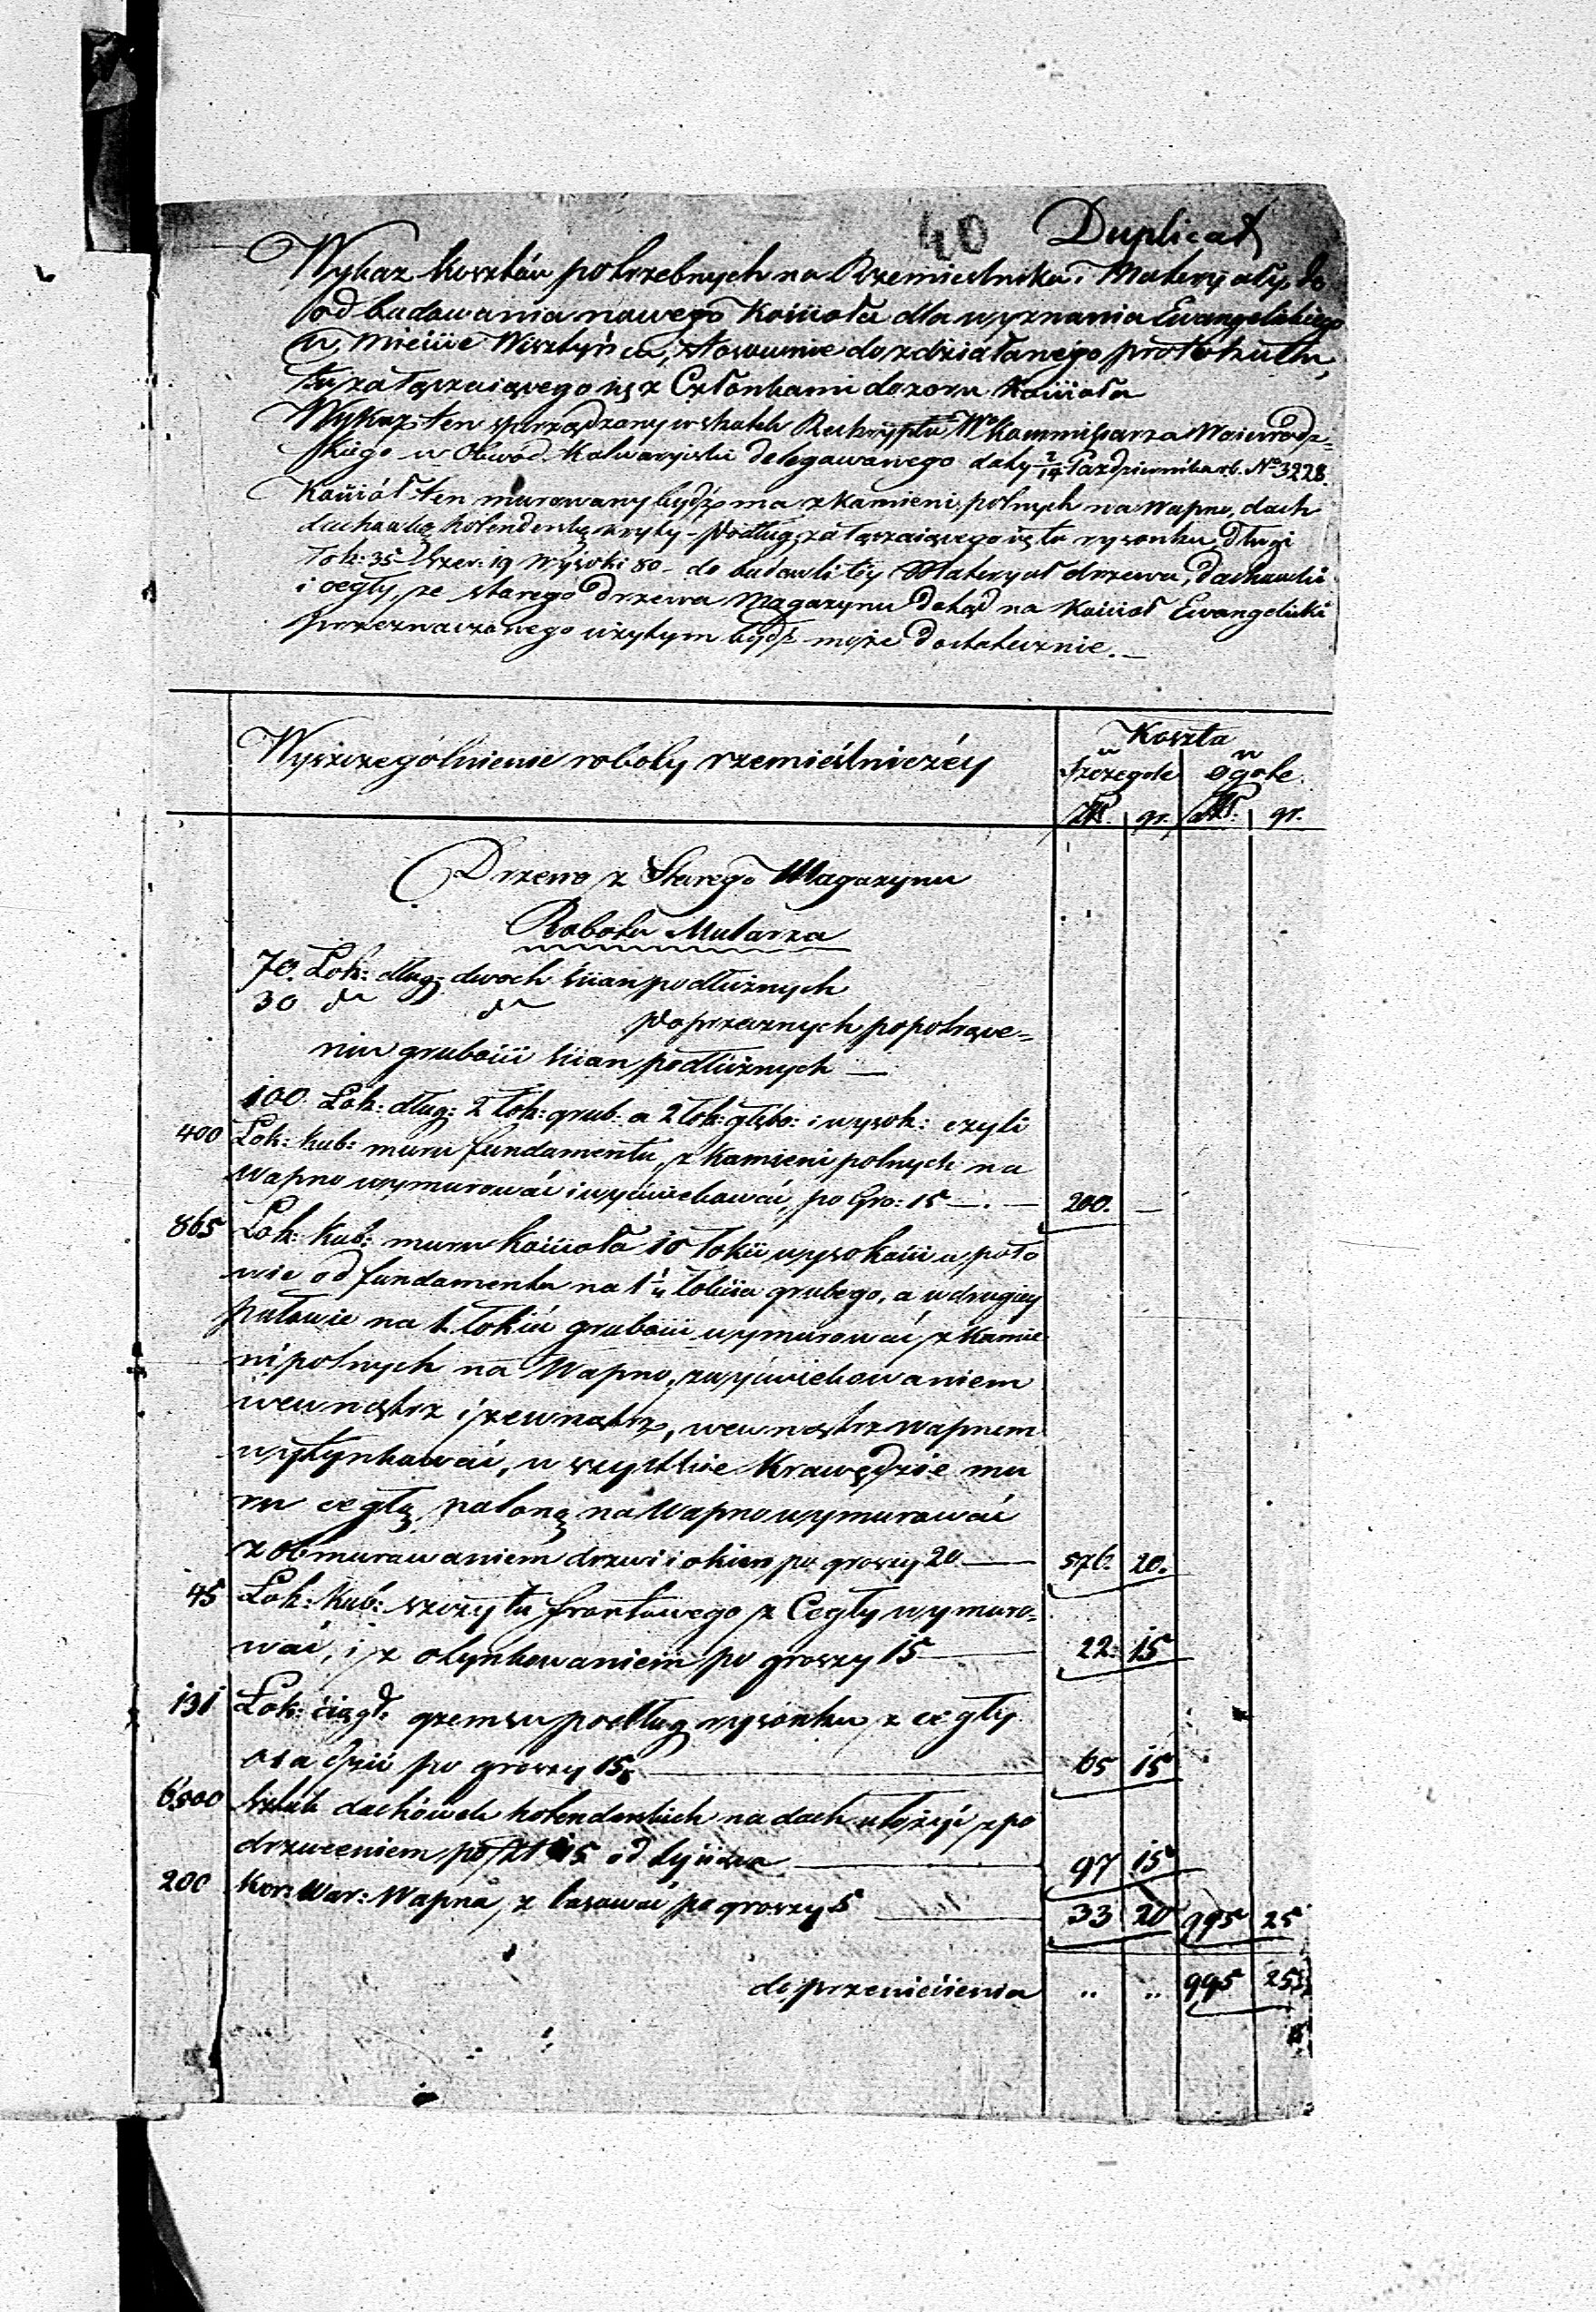 40 Duplicat
Wykaz kosztów potrzebnych na Rzemieślnika i Materyały do
odbudowania nowego Kościoła dla wyznania Ewangelickiego
w Mieście Wisztyńcu, stosownie do zdziałanego protokułu,
tu załączaiącego się z Członkami dozoru Kościoła
Wykaz ten sporządzony w skutek Reskryptu Wº Kommissarza Woiewodz-
skiego w Obwód. Kalwaryiski delegowanego daty 2/14 Października r.b. Nº 3228.
Kościół ten murowany bydź ma z kamieni polnych na wapno, dach
dachówką holenderską kryty - podług załączaiącego się tu rysonku długi
łok: 35 szer: 19 wysoki 80 - do budowli téy Materyał drzewa, dachówki
i cegły, ze starego drzewa Magazynu dotąd na Kościoł Ewangelicki
przeznaczonego użytym bydź może dostatecznie. —
Wyszczególnienie roboty rzemieślniczéy
Koszta
w szczegole w ogole
Złł. gr. Złł. gr.
Drzewo z Starego Magazynu
Robota Mularza
70. Łok: dług: dwoch ścian podłużnych
30 dº dº poprzecznych po potrące-
niu grubości ścian podłużnych —
100. Łok: dług: 2 łok: grub: a 2 łok: głębo: i wysok: czyli
400 Łok: kub: muru fundamentu z kamieni polnych na
wapno wymurować i wyćwiekować, po Gro: 15 —.— 200. —
865 Łok: kub: muru kościoła 10 łokci wysokości w poło
wie od fundamentu na 1 1/4 łokcia grubego, a w drugiey
połowie na 1 łokić grubości wymurować z kamie
ni polnych na Wapno, z wyćwiekowaniem
wewnątrz i zewnątrz, wewnątrz wapnem
wytynkować, wszystkie krawędzie mu
ru cegłą paloną na Wapno wymurować
z obmurowaniem drzwi i okien po groszy 20 — 576. 20.
45 Łok: kub: szczytu frontowego z Cegły wymuro-
wać, i z otynkowaniem po groszy 15 — 22. 15
131 Łok: ciągł: gzemsu podług rysonku z cegły
osadzić po groszy 15 — 65 15
6500 Sztuk dachówek holenderskich na dach ułożyć z po
drzuceniem po Zł 15 od tysiąca — 97 15
200 Kor: War: Wapna z lasować po groszy 5 — 33 20 995 25
do przeniesienia .. .. 995 25